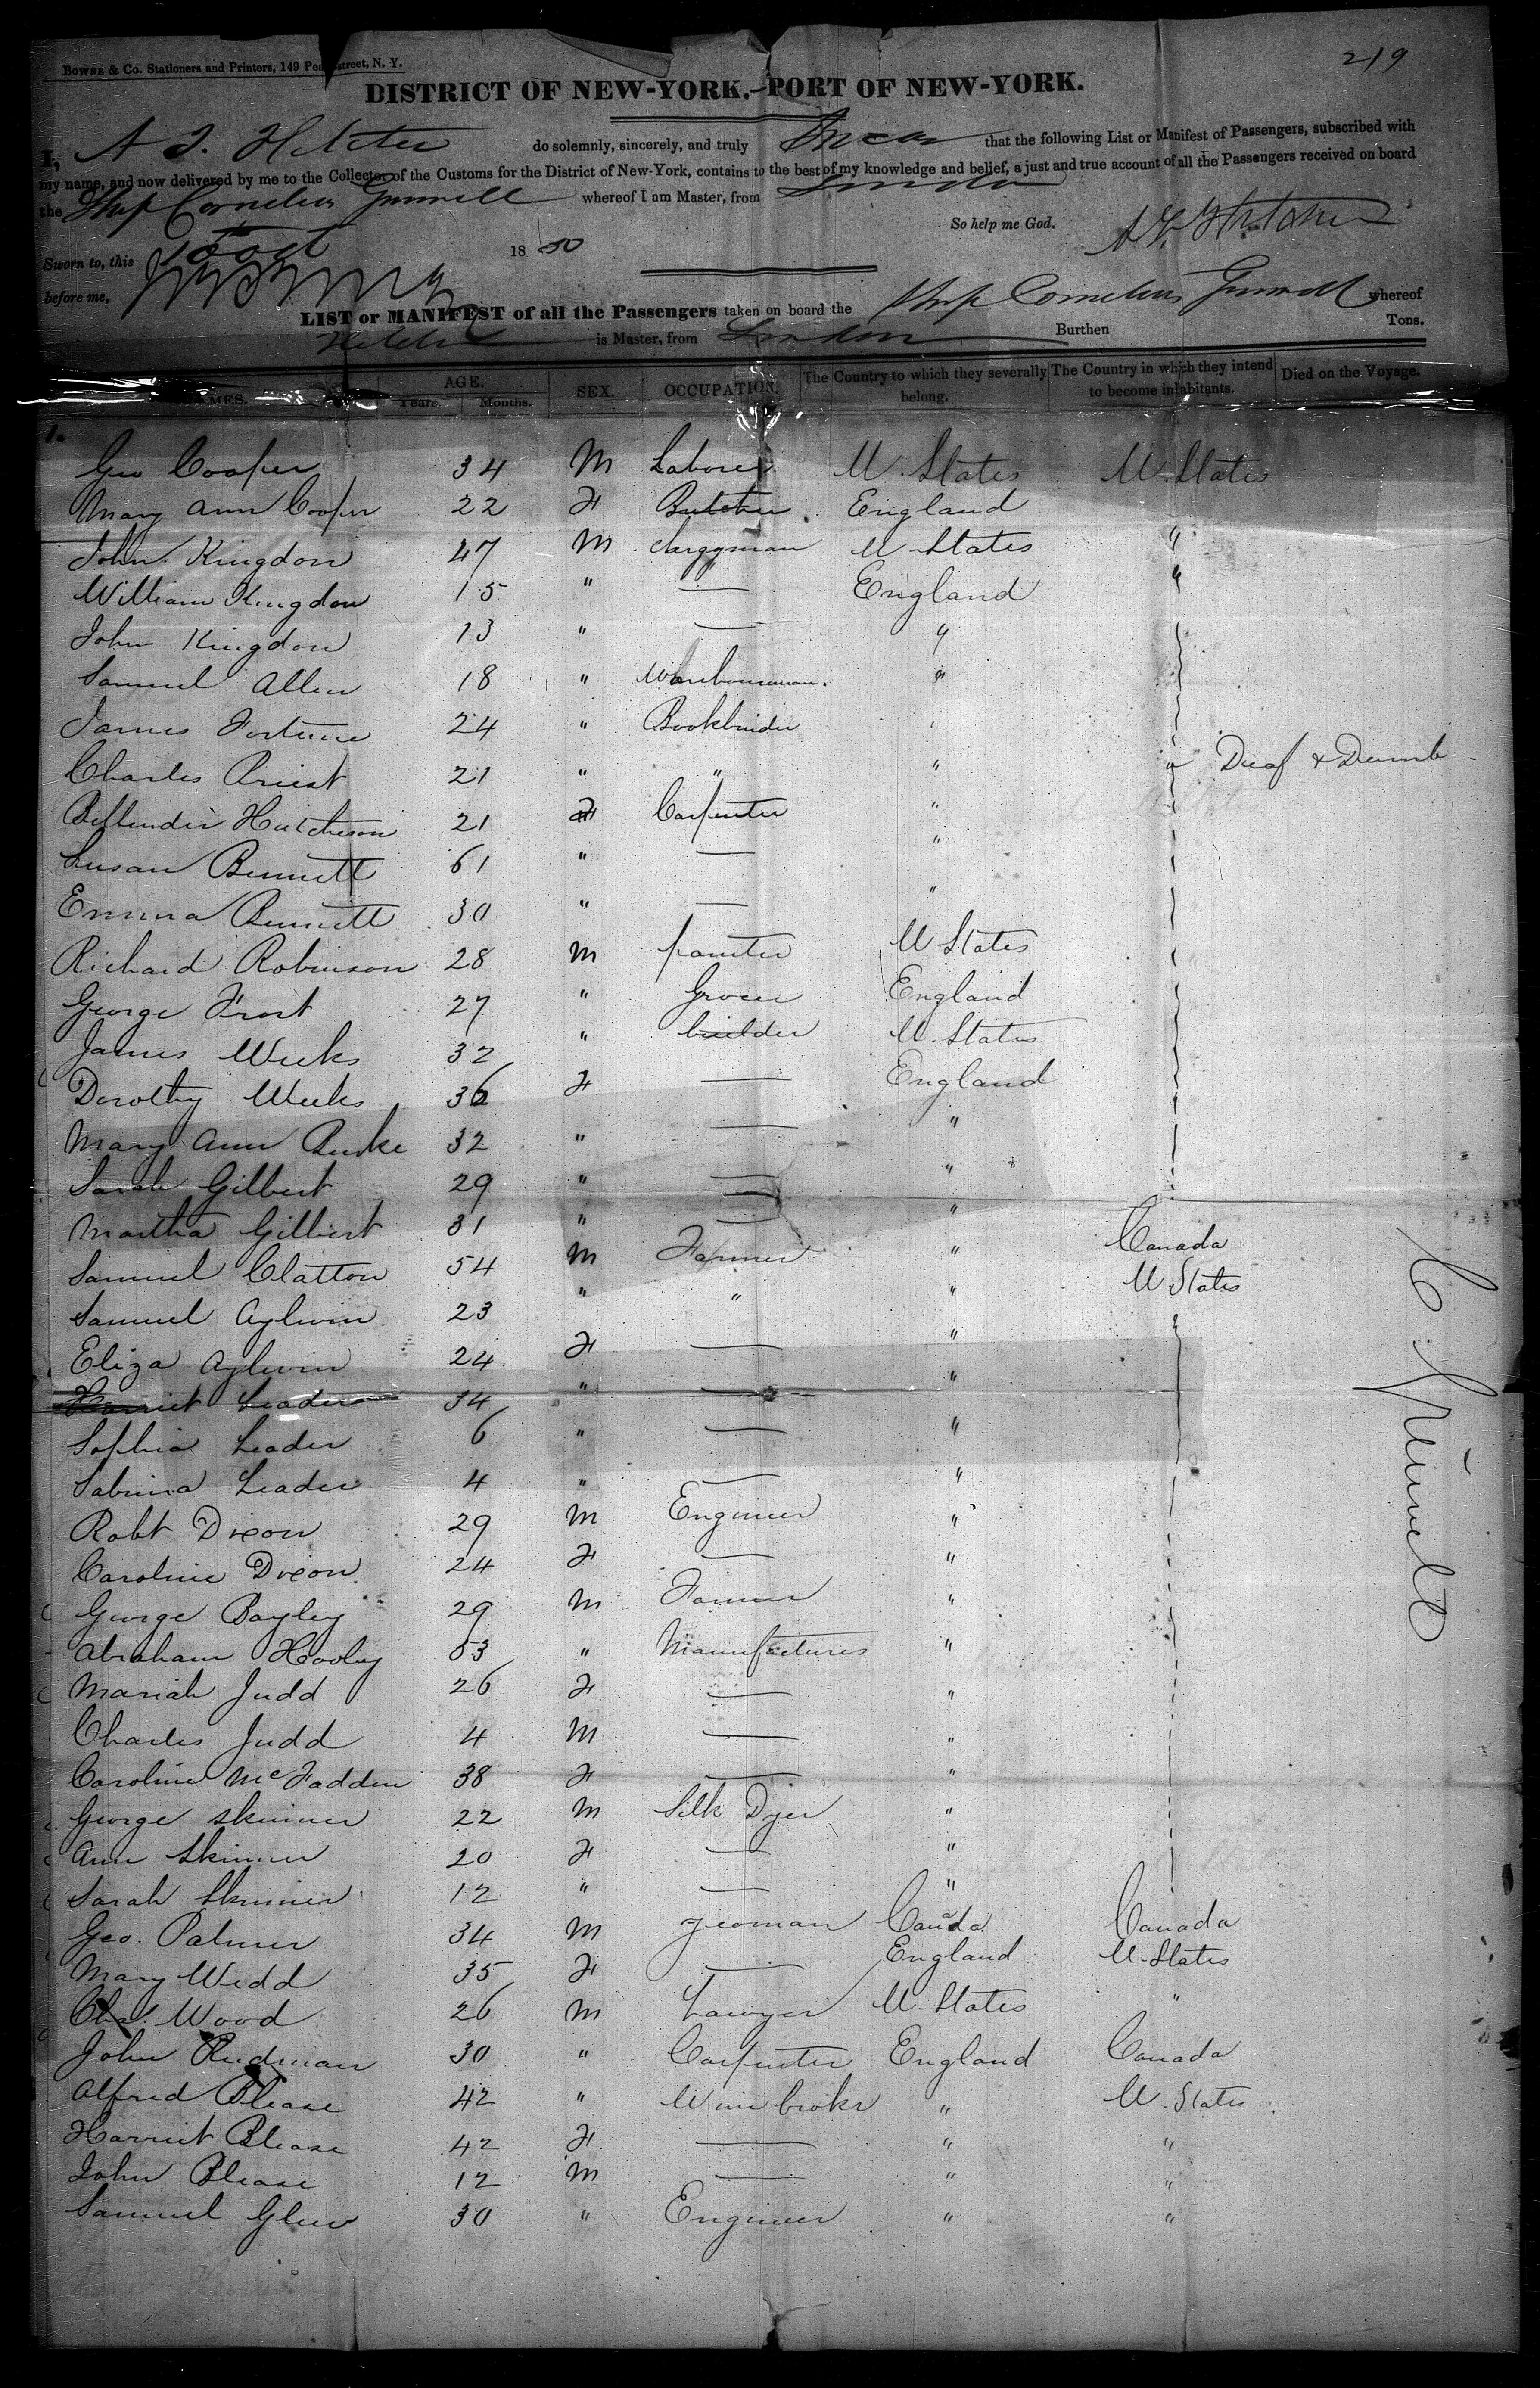 219
BOWNE & Co. Stationers and Printers, 149 Pearl street, N. Y.
DISTRICT OF NEW-YORK.—PORT OF NEW-YORK.
I, A F. do solemnly, sincerely, and truly Swear that the following List or Manifest of Passengers, subscribed with
my name, and now delivered by me to the Collector of the Customs for the District of New-York, contains to the best of my knowledge and belief, a just and true account of all the Passengers received on board
the Ship Cornelius Grinnell whereof I am Master, from London
So help me God.
Sworn to, this 18 50
before me,
LIST or MANIFEST of all the Passengers taken on board the Ship Cornelius Grinnell whereof
is Master, from London Burthen Tons.
NAMES. AGE. Years. Months. SEX. OCCUPATION. The Country to which they severally belong. The Country in which they intend to become inhabitants. Died on the Voyage.
1.
Geo Cooper 34 M Laborer U. States U. States
Mary Ann Cooper 22 F Butcher England
John Kingdon 47 M Clergyman U States "
William Kingdon 15 " — England "
John Kingdon 13 " — "
Samuel Allen 18 " Warehouseman. "
James Fortune 24 " Bookbinder "
Charles Priest 21 " " " " Deaf & Dumb
Hutcheson 21 F Carpenter "
Susan Bennett 61 " — "
Emma Bennett 30 " — "
Richard Robinson 28 M painter U States
George Frost 27 " Grocer England
James Weeks 32 " builder U. States
Dorothy Weeks 36 F — England
Mary Ann Burke 32 " — "
Sarah Gilbert 29 " — "
Martha Gilbert 31 " — "
Samuel Clatton 54 M Farmer " Canada
Samuel Aylwin 23 " " " U States
Eliza Aylwin 24 F — "
Harriet Leader 34 " — "
Sophia Leader 6 " — "
Sabrina Leader 4 " — "
Robt Dixon 29 M Engineer "
Caroline Dixon 24 F — "
George Bayley 29 M Farmer "
Abraham Hooley 53 " Manufacturer "
Mariah Judd 26 F — "
Charles Judd 4 M — "
Caroline McFadden 38 F — "
George Skinner 22 M Silk Dyer "
Ann Skinner 20 F — "
Sarah Skinner 12 " — "
Geo. Palmer 34 M Yeoman Canada Canada
Mary Wedd 35 F — England U. States
Chas. Wood 26 M Lawyer U. States "
John Rudman 30 " Carpenter England Canada
Alfred Blease 42 " Wine broker " U. States
Harriet Blease 42 F — " "
John Blease 12 M — " "
Samuel Glew 30 " Engineer " "
C Grinnell